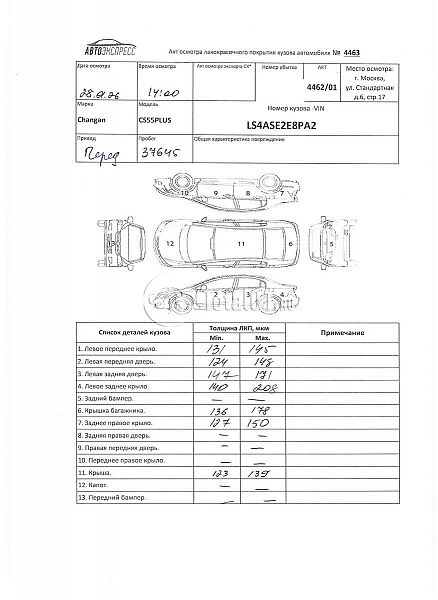 АВТОЭКСПРЕСС
Акт осмотра лакокрасочного покрытия кузова автомобиля № 4463
Дата осмотра Время осмотра Акт осмотра эксперта СК* Номер убытка АКТ Место осмотра:
28.01.26 14:00 4462/01 г. Москва,
ул. Стандартная
д.6, стр.17
Марка Модель Номер кузова -VIN
Changan CS55PLUS LS4ASE2E8PA2
Привод Пробег Общая характеристика повреждений
Перед 37645
10 9 8 7
13 12 11 6 5
1 2 3 4
Список деталей кузова Толщина ЛКП, мкм Примечание
Min. Max.
1. Левое переднее крыло. 131 145
2. Левая передняя дверь. 124 148
3. Левая задняя дверь. 147 171
4. Левое заднее крыло. 140 208
5. Задний бампер. — —
6. Крышка багажника. 136 178
7. Заднее правое крыло. 127 150
8. Задняя правая дверь. — —
9. Правая передняя дверь. — —
10. Переднее правое крыло. — —
11. Крыша. 123 139
12. Капот. — —
13. Передний бампер. — —